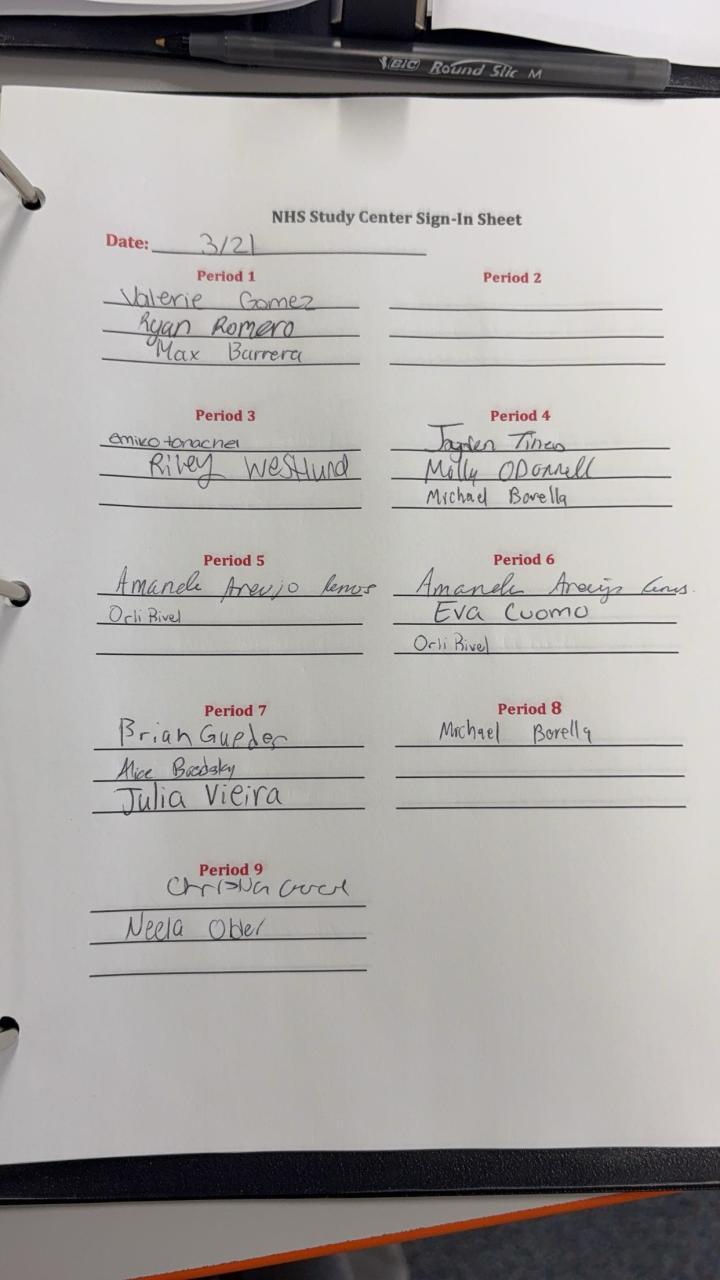 BIC Round Stic M
NHS Study Center Sign-In Sheet
Date: 3/21
Period 1
Valerie Gomez
Ryan Romero
Max Barrera
Period 2
Period 3
emiko
Riley Westlund
Period 4
Jayden
Molly ODonnell
Michael Borella
Period 5
Amanda Araujo
Orli Rivel
Period 6
Amanda Araujo
Eva Cuomo
Orli Rivel
Period 7
Brian
Alice Brodsky
Julia Vieira
Period 8
Michael Borella
Period 9
Neela Ober